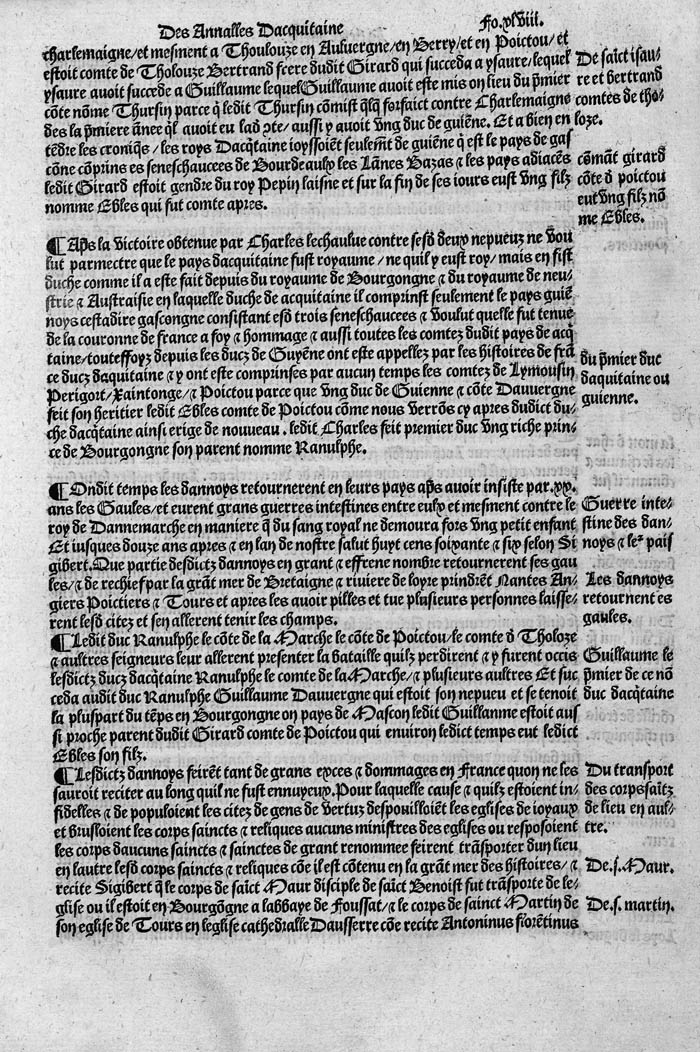 Des Annalles Dacquitaine
Fo.xlviii.
charlemaigne/et mesment a Thoulouze en Auluergne/en Berry/et en Poictou/et
estoit comte de Tholouze Bertrand frere dudit Girard qui succeda a ysaure/lequel
ysaure auoit succede a Guillaume lequel Guillaume auoit este mis on lieu du p̄mier
cōte nōme Thursin parce q̄ ledit Thursin cōmist q̄lq̄ forfaict contre Charlemaigne
des la p̄miere ānee q̄l auoit eu lad̄ cōte/aussi y auoit vng duc de guiēne. Et a bien en
tēdre les croniq̄s/les roys Dacq̄taine ioyssoiēt seulemēt de guiēne q̄ est le pays de gas
cōne cōprins es seneschaucees de Bourdeaulx les Lānes Bazas ⁊ les pays adiacēs
ledit Girard estoit gendre du roy Pepin laisne et sur la fin de ses iours eust vng filz
nomme Ebles qui fut comte apres.
De saīct isau/
re et bertrand
comtes de tho/
loze.
cōmāt girard
cōte d̄ poictou
eut vng filz nō
me Ebles.
¶Ap̄s la victoire obtenue par Charles lechaulue contre sesd̄ deux nepueuz ne vou
lut parmectre que le pays dacquitaine fust royaume/ne quil y eust roy/mais en fist
duche comme il a este fait depuis du royaume de Bourgongne ⁊ du royaume de neu/
strie ⁊ Austraisie en laquelle duche de acquitaine il comprinst seulement le pays guiē
noys cestadire gascongne consistant esd̄ trois seneschaucees ⁊ voulut quelle fut tenue
de la couronne de france a foy ⁊ hommage ⁊ aussi toutes les comtez dudit pays de acq̄
taine/touteffoyz depuis les ducz de Guyēne ont este appellez par les histoires de frā
ce ducz daquitaine ⁊ y ont este comprinses par aucun temps les comtez de Lymousin
Perigort/Xaintonge/⁊ Poictou parce que vng duc de Guienne ⁊ cōte Dauuergne
feit son heritier ledit Ebles comte de Poictou cōme nous verrōs cy apres dudict du/
che dacq̄taine ainsi erige de nouueau. ledit Charles feit premier duc vng riche prin/
ce de Bourgongne son parent nomme Ranulphe.
du p̄mier duc
daquitaine ou
guienne.
¶Ondit temps les dannoys retournerent en leurs pays ap̄s auoir insiste par.xx.
ans les Gaules/et eurent grans guerres intestines entre eulx et mesment contre le
roy de Dannemarche en maniere q̄ du sang royal ne demoura fors vng petit enfant
Et iusques douze ans apres ⁊ en lan de nostre salut huyt cens soixante ⁊ six selon Si
gibert. Que partie desdictz dannoys en grant ⁊ effrene nombre retournerent ses gau
les/⁊ de rechief par la grāt mer de Bretaigne ⁊ riuiere de loyre prindrēt Nantes An/
giers Poictiers ⁊ Tours et apres les auoir pilles et tue plusieurs personnes laisse/
rent lesd̄ citez et sen allerent tenir les champs.
Guerre inte/
stine des dan/
noys ⁊ leʳ pais
Les dannoys
retournent es
gaules.
¶Ledit duc Ranulphe le cōte de la Marche le cōte de Poictou/le comte d̄ Tholoze
⁊ aultres seigneurs leur allerent presenter la bataille quilz perdirent ⁊ y furent occis
lesdictz ducz dacq̄taine Ranulphe le comte de la Marche/⁊ plusieurs aultres Et suc
ceda audit duc Ranulphe Guillaume Dauuergne qui estoit son nepueu et se tenoit
la pluspart du tēps en Bourgongne on pays de Mascon ledit Guillaume estoit aus
si proche parent dudit Girard comte de Poictou qui enuiron ledict temps eut ledict
Ebles son filz.
Guillaume le
p̄mier de ce nō
duc dacq̄taine
¶Lesdictz dannoys feirēt tant de grans exces ⁊ dommages en France quon ne les
sauroit reciter au long quil ne fust ennuyeux. Pour laquelle cause ⁊ quilz estoient in/
fidelles ⁊ de populoient les citez de gens de vertuz despouilloiēt les eglises de ioyaux
et brusloient les corps saincts ⁊ reliques aucuns ministres des eglises ou resposoient
les corps daucuns saincts ⁊ sainctes de grant renommee feirent trāsporter dun lieu
en lautre lesd̄ corps saincts ⁊ reliques cōe il est cōtenu en la grāt mer des histoires/⁊
recite Sigibert q̄ le corps de saīct Maur disciple de saīct Benoist fut trāsporte de le/
glise ou il estoit en Bourgōgne a labbaye de Foussat/⁊ le corps de sainct Martin de
son eglise de Tours en leglise cathedralle Dausserre cōe recite Antoninus florētinus
Du transport
des corpssaītz
de lieu en aul/
tre.
De.s.Maur.
De.s.martin.